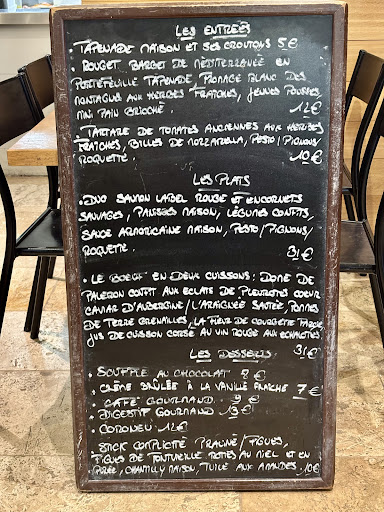 LES ENTRÉES
• TAPENADE MAISON ET SES CROUTONS 5€
• ROUGET BARBET DE MÉDITERRANÉE EN
PORTEFEUILLE TAPENADE, FROMAGE BLANC DES
MONTAGNES AUX HERBES FRAÎCHES, JEUNES POUSSES,
MINI PAIN BRIOCHÉ. 12€
• TARTARE DE TOMATES ANCIENNES AUX HERBES
FRAÎCHES, BILLES DE MOZZARELLA, PESTO/PIGNONS/
ROQUETTE. 10€
LES PLATS
• DUO SAUMON LABEL ROUGE ET ENCORNETS
SAUVAGES, PANISSES MAISON, LÉGUMES CONFITS,
SAUCE ARMORICAINE MAISON, PESTO/PIGNONS/
ROQUETTE. 31€
• LE BOEUF EN DEUX CUISSONS: DÔME DE
PALERON CONFIT AUX ECLATS DE PLEUROTES COEUR
CAVIAR D'AUBERGINE / L'ARAIGNÉE SAUTÉE, POMMES
DE TERRE GRENAILLES, LA FLEUR DE COURGETTE FARCIE
JUS DE CUISSON CORSÉ AU VIN ROUGE AUX ECHALOTES
31€
LES DESSERTS
• SOUFFLE AU CHOCOLAT 8€
• CRÈME BRÛLÉE À LA VANILLE FRAÎCHE 7€
• CAFÉ GOURMAND 9€
• DIGESTIF GOURMAND 13€
• COLONEL 12€
• STICK COMPLICITÉ PRALINÉ/FIGUES,
FIGUES DE ROTIES AU MIEL ET EN
PURÉE, CHANTILLY MAISON, TUILE AUX AMANDES 10€